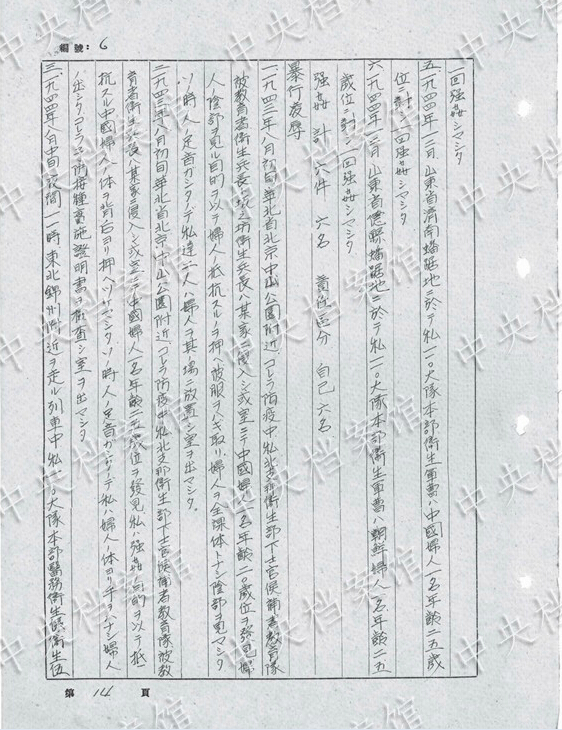 編號：6
一回强姦シマシタ
五、一九四四年一二月、山東省済南蟠踞地ニ於テ私一一〇大隊本部衛生軍曹ハ中國婦人一名年齢二五歳
位ニ對シ一回强姦シマシタ
六、一九四四年一二月、山東省德縣蟠踞地ニ於テ私一一〇大隊本部衛生軍曹ハ朝鮮婦人一名年齢二五
歳位ニ對シ一回强姦シマシタ
强姦計 六件 六名 責任区分 自己六名
暴行凌辱
一、一九四三年八月初旬華北省北京中山公園附近「コレラ」防疫中私北支那衛生部下士官候補者教育隊
被教育者衛生兵長ハ坊衛生兵長ハ某家ニ侵入シ或室ニテ中國婦人一名年齢二〇歳位ヲ発見婦
人ノ陰部ヲ見ル目的ヲ以テ婦人ノ抵抗スルノヲ押ヘ被服ヲハギ取リ婦人ヲ全裸体トナシ陰部ヲ見マシタ
ソノ時人ノ足音ガシタノデ私達二人ハ婦人ヲ其ノ場ニ放置シ室ヲ出マシタ。
二、一九四三年八月初旬華北省北京中山公園附近「コレラ」防疫中私北支那衛生部下士官候補者教育隊被教
育者衛生兵長ハ某家ニ侵入シ或室ニテ中國婦人一名年齢二五歳位ヲ発見私ハ强姦ノ目的ヲ以テ抵
抗スル中國婦人ノ体ヲ背台ヨリ押ヘツケマシタソノ時人ノ足音ガシタノデ私ハ婦人ノ体ヨリ手ヲハナシ婦人
ノ出シタ「コレラ」予防接種実施證明書ヲ檢査シ室ヲ出マシタ
三、一九四四年八月中旬夜間一一時東北錦州附近ヲ走ル列車中私一一〇大隊本部醫務衛生部衛生伍
第 頁
中央档案馆